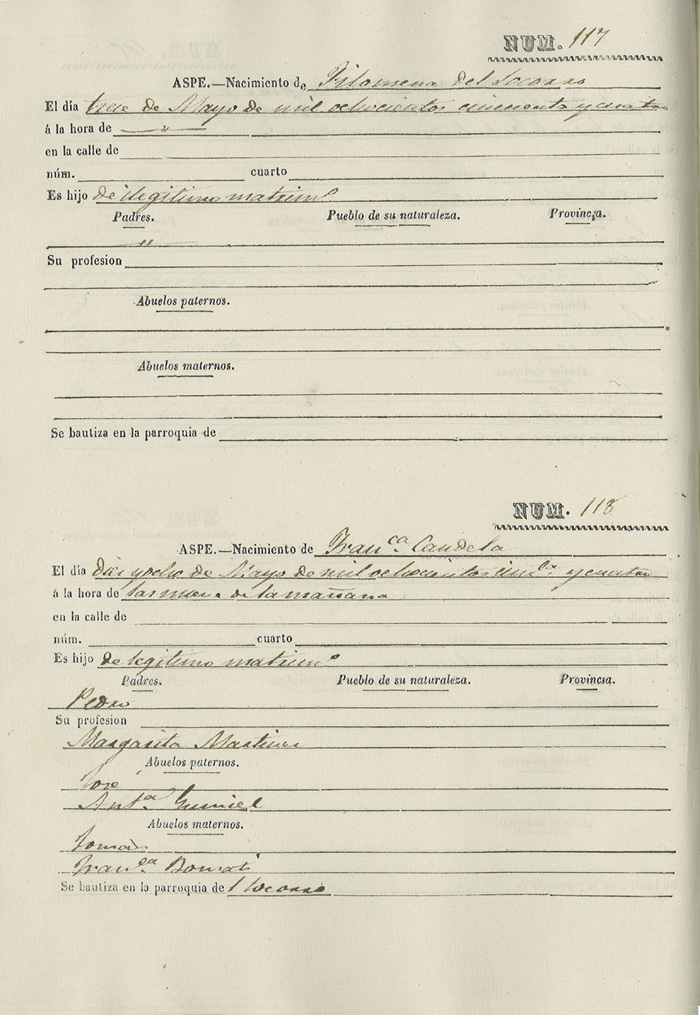 NUM. 117
ASPE.—Nacimiento de Filomena del Socorro
El día trece de Mayo de mil ochocientos cincuenta y cuatro
á la hora de — " —
en la calle de
núm. cuarto
Es hijo de ilegitimo matrimº
Padres. Pueblo de su naturaleza. Provincia.
"
Su profesion
Abuelos paternos.
Abuelos maternos.
Se bautiza en la parroquia de
NUM. 118
ASPE.—Nacimiento de Franᶜᵃ Candela
El día diez y ocho de Mayo de mil ochocientos cinᵗᵃ y cuatro
á la hora de las nueve de la mañana
en la calle de
núm. cuarto
Es hijo de legitimo matrimº
Padres. Pueblo de su naturaleza. Provincia.
Pedro
Su profesion
Margarita Martinez
Abuelos paternos.
José
Antᵃ
Abuelos maternos.
Tomás
Franᶜᵃ Bonmatí
Se bautiza en la parroquia de l Socorro